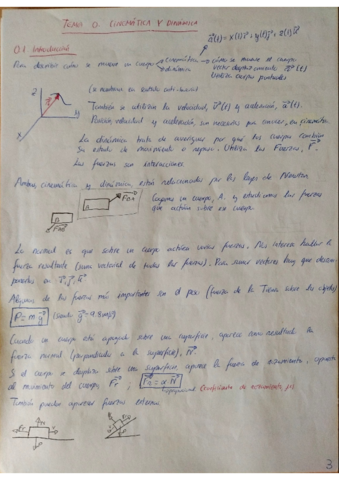 TEMA 0. CINEMÁTICA Y DINÁMICA
0.1 Introducción
r⃗(t) = x(t)i⃗ + y(t)j⃗ + z(t)k⃗
Para describir cómo se mueve un cuerpo
cinemática
dinámica
cómo se mueve el cuerpo
vector desplazamiento r⃗(t)
Utiliza cuerpos puntuales
z
x
y
También se utiliza la velocidad, v⃗(t) y aceleración, a⃗(t).
Posición, velocidad y aceleración, son
La dinámica trata de averiguar por qué los cuerpos cambian
su estado de movimiento o reposo. Utiliza las Fuerzas, F⃗.
Las fuerzas son interacciones
cinemática y dinámica están relacionadas por las leyes de Newton
un cuerpo, A, y estudiamos las fuerzas
que actúan sobre ese cuerpo.
A
B
Lo normal es que sobre un cuerpo actúen varias fuerzas. Nos interesa hallar la
fuerza resultante (suma vectorial de todas las fuerzas). Para sumar vectores hay que descom-
ponerlos en i⃗, j⃗, k⃗
Algunas de las fuerzas más importantes son el peso (fuerza de la Tierra sobre los objetos)
P⃗ = m g⃗
Cuando un cuerpo está apoyado sobre una superficie, aparece
fuerza normal (perpendicular a la superficie), N⃗
Si el cuerpo se desplaza sobre una superficie aparece la fuerza de rozamiento, opuesta
al movimiento del cuerpo, F⃗r ;
Coeficiente de rozamiento (μ)
También pueden aparecer fuerzas externas
3